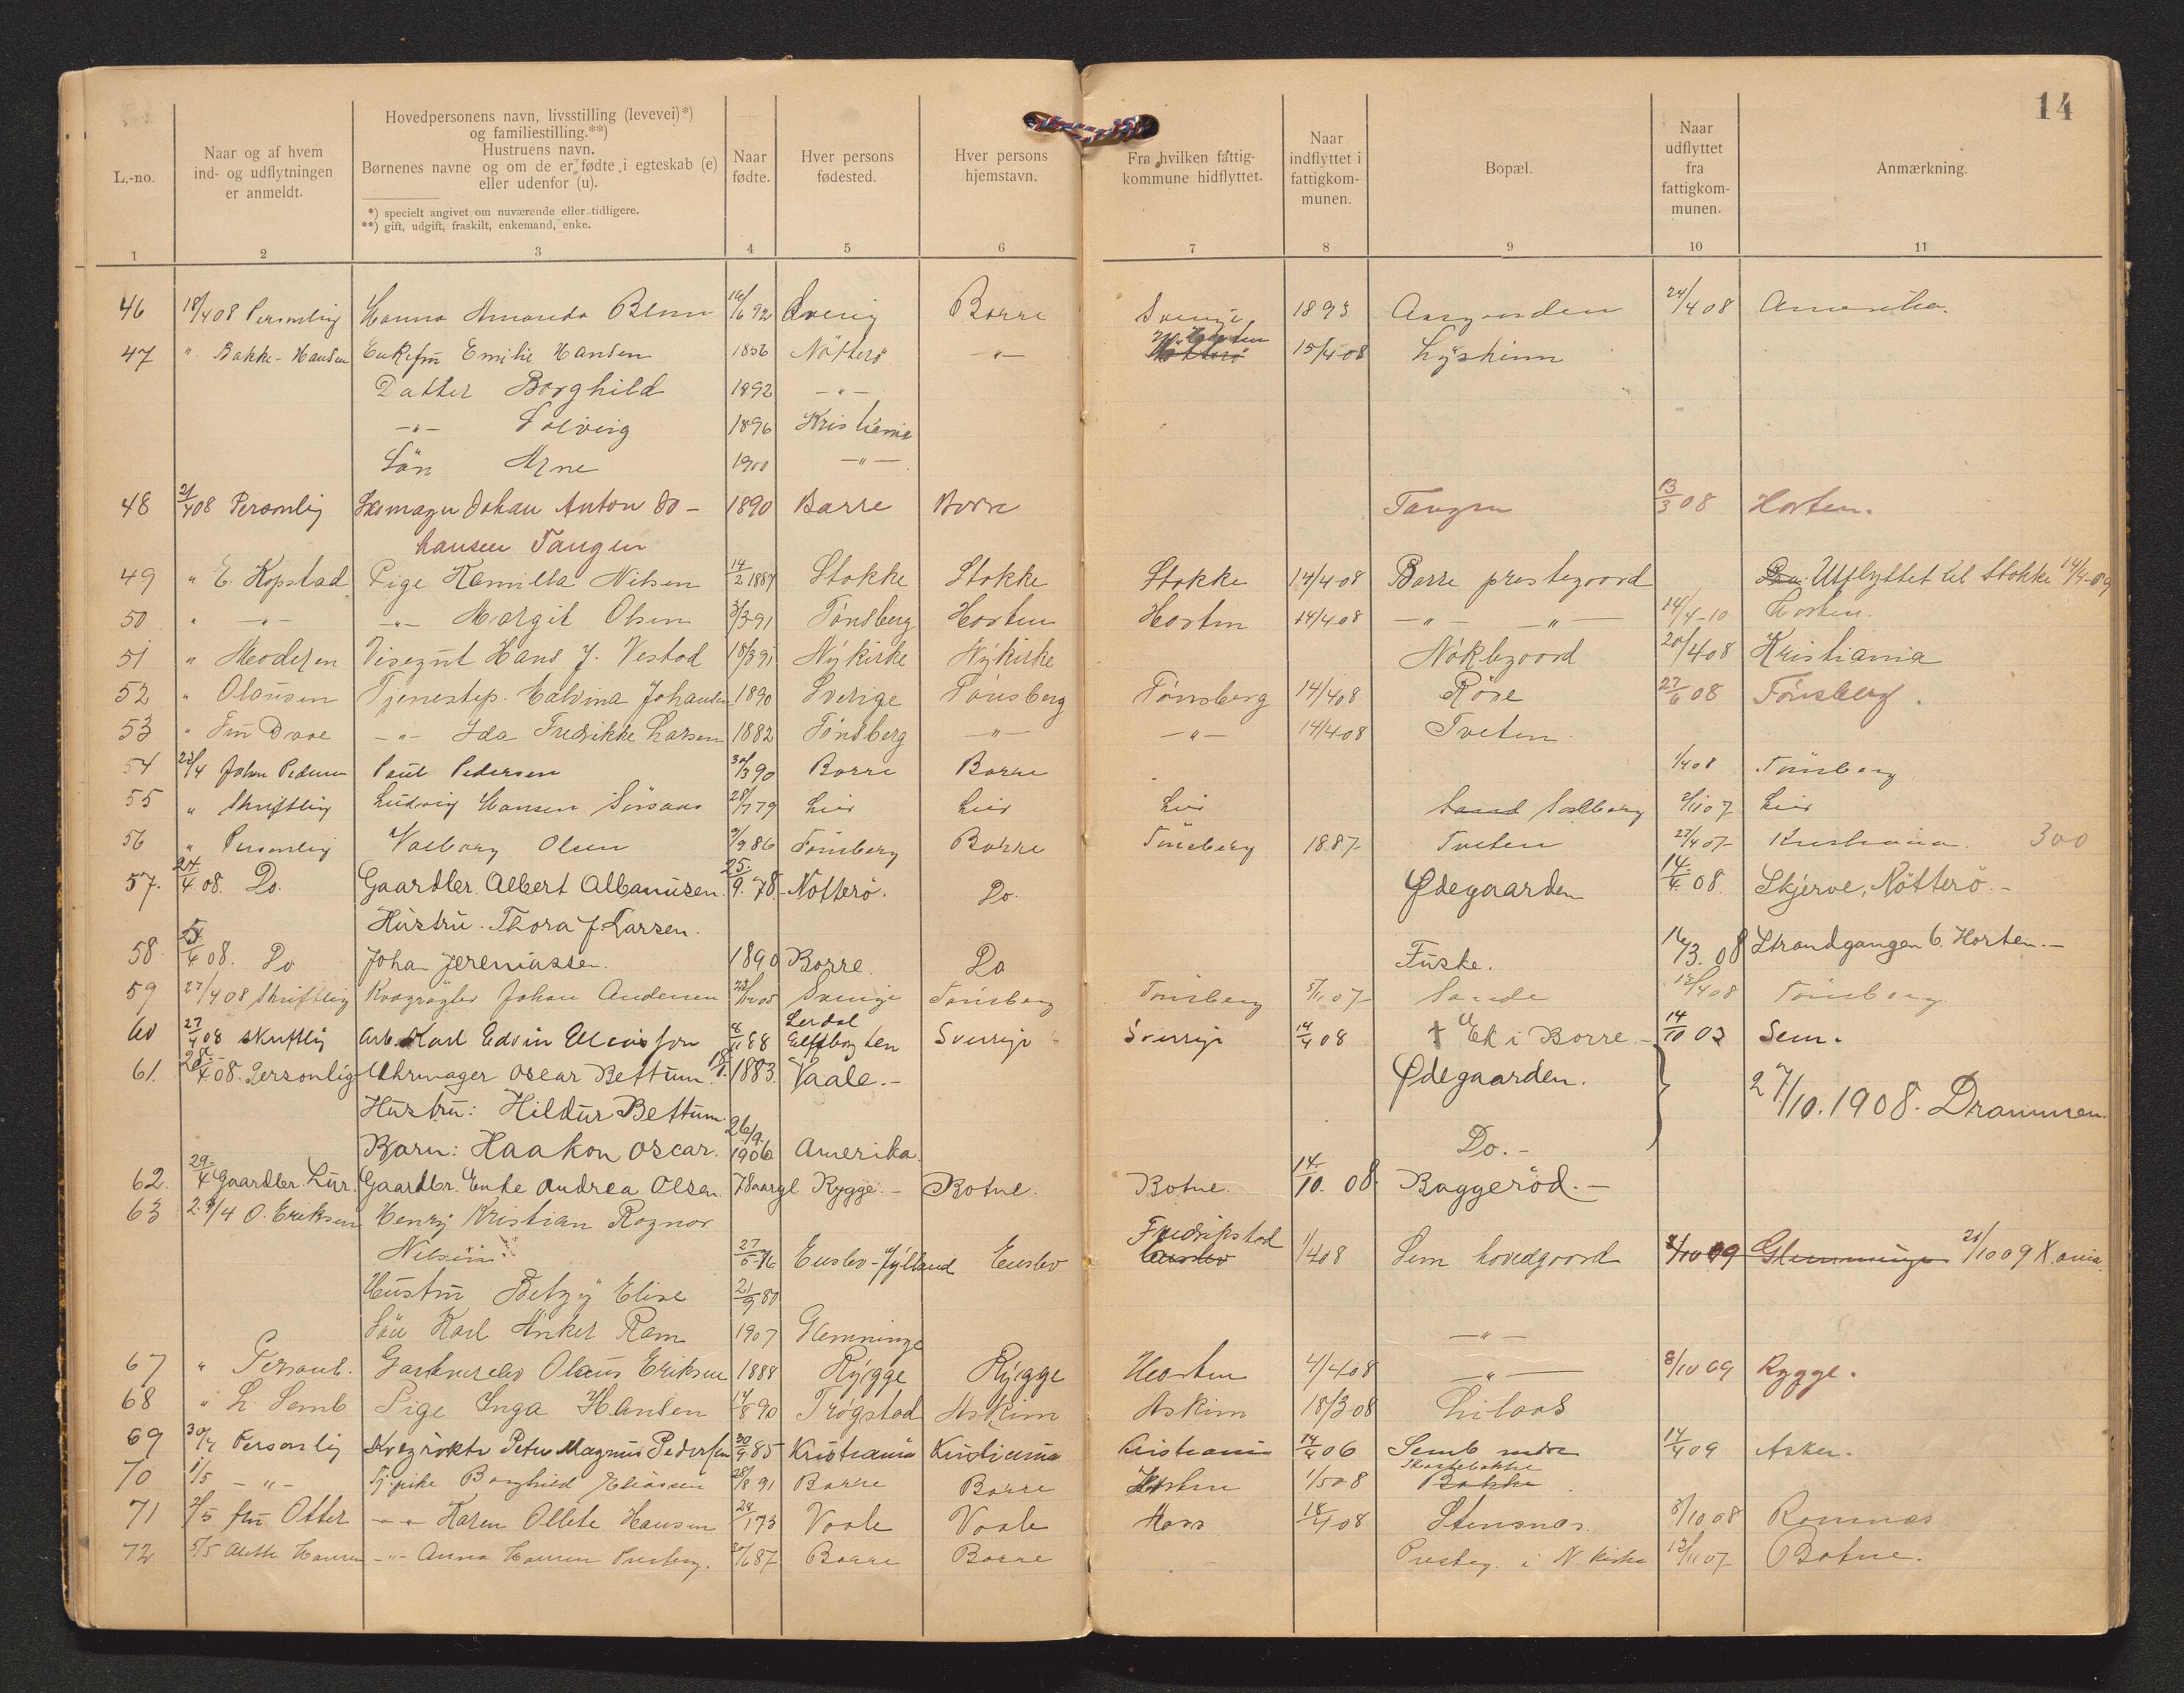 14
L.-no.
Naar og af hvem
ind- og udflytningen
er anmeldt.
Hovedpersonens navn, livsstilling (levevei)*)
og familiestilling.**)
Hustruens navn.
Børnenes navne og om de er fødte i egteskab (e)
eller udenfor (u).
*) specielt angivet om nuværende eller tidligere.
**) gift, udgift, fraskilt, enkemand, enke.
Naar
fødte.
Hver persons
fødested.
Hver persons
hjemstavn.
Fra hvilken fattig-
kommune hidflyttet.
Naar
indflyttet i
fattigkom-
munen.
Bopæl.
Naar
udflyttet
fra
fattigkom-
munen.
Anmærkning.
1 2 3 4 5 6 7 8 9 10 11
46 18/4 08 Personlig Hanna Amanda 16/6 92 Sverig Borre Sverige 1893 Aasgaarden 24/4 08 Amerika.
47 " Bakke-Hansen Enkefru Emilie Hansen 1856 Nötterö -"- 15/4-08 Lyskinn
Datter Borghild 1892 -"-
-"- Solveig 1896 Kristiania
Sön Arne 1900 -"-
48 21/4 08 Personlig Johan Anton Jo- 1890 Borre Borre Tangen 13/3 08 Horten.
hansen Tangen
49 " E. Kopstad Pige Kamilla Nilsen 14/2 1887 Stokke Stokke Stokke 14/4-08 Borre prestegaard Utflyttet til Stokke 14/4-09
50 " -"- -"- Margit Olsen 3/3-91 Tönsberg Horten Horten 14/4 08 -"- -"- 14/4-10 Horten.
51 " Hans J. Vestad 18/3 91 Nykirke Nykirke 20/4 08 Kristiania
52 " Olausen Tjenestep. Johansen 1890 Sverige Tönsberg Tönsberg 14/4 08 Röre 27/6 08 Tönsberg.
53 " Fru -"- Ida Fredrikke Larsen 1882 Tönsberg -"- -"- 14/4 08 Tveten
54 22/4 John Pedersen Paul Pedersen 30/3 90 Borre Borre 1/4 08 Tönsberg
55 " Skriftlig Ludvig Hansen Sörsaas 28/7 79 Lier Lier Lier Solberg 2/11 07 Lier
56 " Personlig Valborg Olsen 2/9 86 Tönsberg Borre Tönsberg 1887 Tveten 27/4 07 Kristiania. 300
57. 24/4 08. Do. Gaardbr. Albert Albanusen. 25/9. 78. Nötterö. Do. Ødegaarden 14/4 08. Skjerve, Nötterö.-
Hustru. Thora J. Larsen.
58. 08. Do Johan Jeremiassen. 1890 Borre. Do Fuske. 16/3. 08 Strandgangen 6. Horten.-
59 27/4 08 Skriftlig Johan Andersen Sverige Tönsberg Tönsberg 5/11 07 Sande 12/4 08 Tönsberg
60 27/4 08 skriftlig Arb. Karl Edvin 8/11 88 Lerdal
Sverrige Sverrige 14/4 08 † Ek i Borre - 14/10 03 Sem.
61. 28/4 08. Personlig Uhrmager Oscar Bettum. 18/1. 1883. Vaale.- Ødegaarden.
Hustru: Hildur Bettum. 27/10. 1908. Drammen.
Barn: Haakon Oscar. 26/9. 1906 Amerika. Do.-
62. 29/4 Gaardbr. Lur. Gaardbr. Enke Andrea Olsen. 78aargl Rygge.- Botne. Botne. 14/10. 08. Baggeröd.-
63 29/4 O. Eriksen Henry Kristian Ragnar
Nilsen 27/5-76 Enslev-Jylland Enslev Fredrikstad Enslev 1/4 08 Sem hovedgaard 2/10 09 Glemminge 21/10 09 K.ania.
Hustru Betzy Elise 21/9 80
Sön Karl Anker Ram 1907 Glemminge -"-
67 " Personl. Olaus Eriksen 1888 Rygge Rygge Horten 4/4 08 -"- 8/10 09 Rygge.
68 " L. Semb Pige Inga Hansen 14/8 90 Trögstad Askim Askim 18/3 08 Lilaas
69 30/4 Personlig Peter Magnus Pedersen 30/9 85 Kristiania Kristiania Kristiania 14/4 06 Semb 14/4 09 Asker.
70 1/5 -"- Tj.pike Borghild Eliassen 28/8 91 Borre Borre Horten 1/5 08 Bakke
71 2/5 fru Otter -"- Karen Ollete Hansen 24/1 73 Vaale Vaale Moss 14/4 08 Stensnæs. 8/10 08 Ramnæs
72 5/5 Hansen -"- Anna Hansen 27/6 87 Borre Borre Presteg. i N. kirke 12/11 07 Botne.